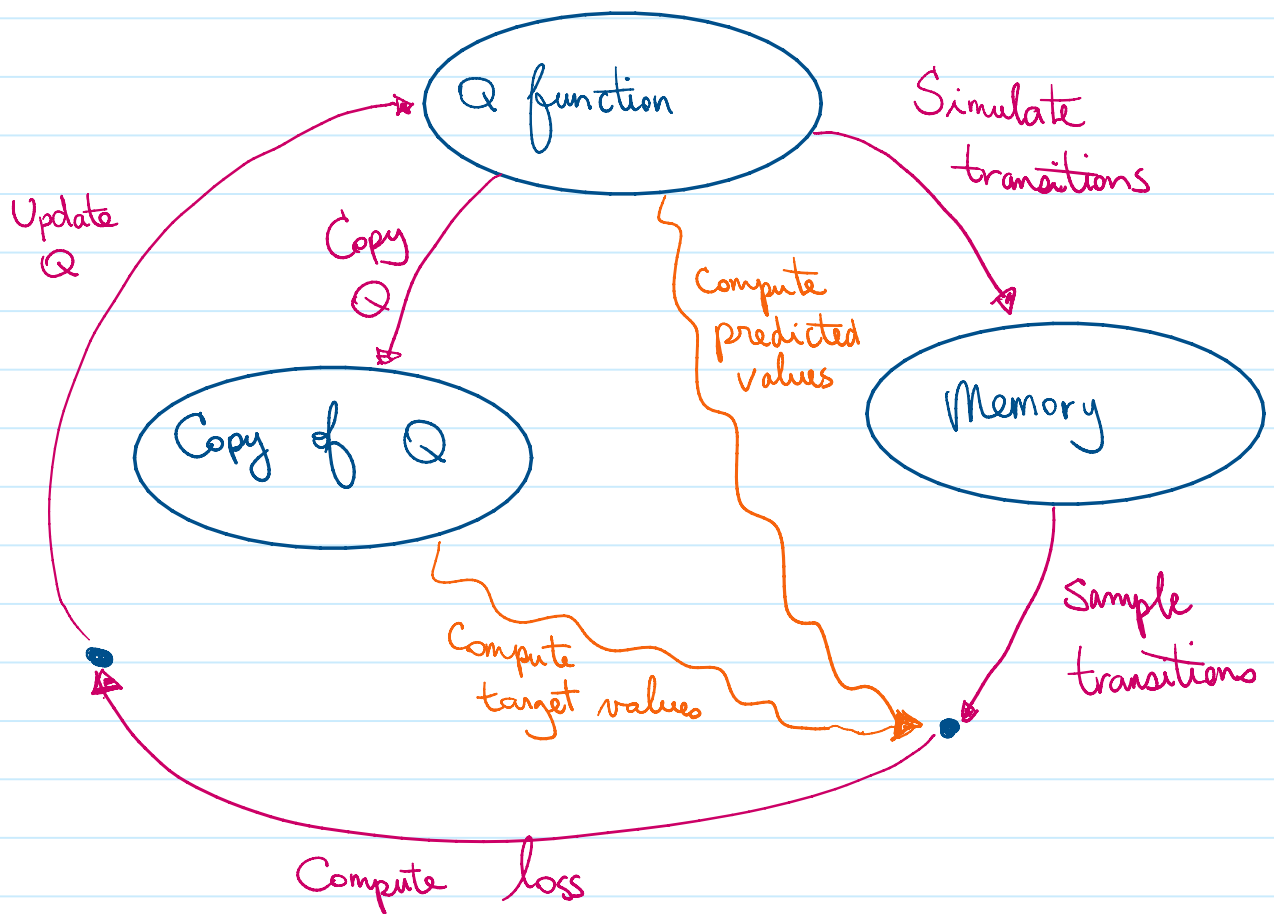 Q function
Simulate
transitions
Update
Q
Copy
Q
Compute
predicted
values
Memory
Copy of Q
Sample
transitions
Compute
target values
Compute loss